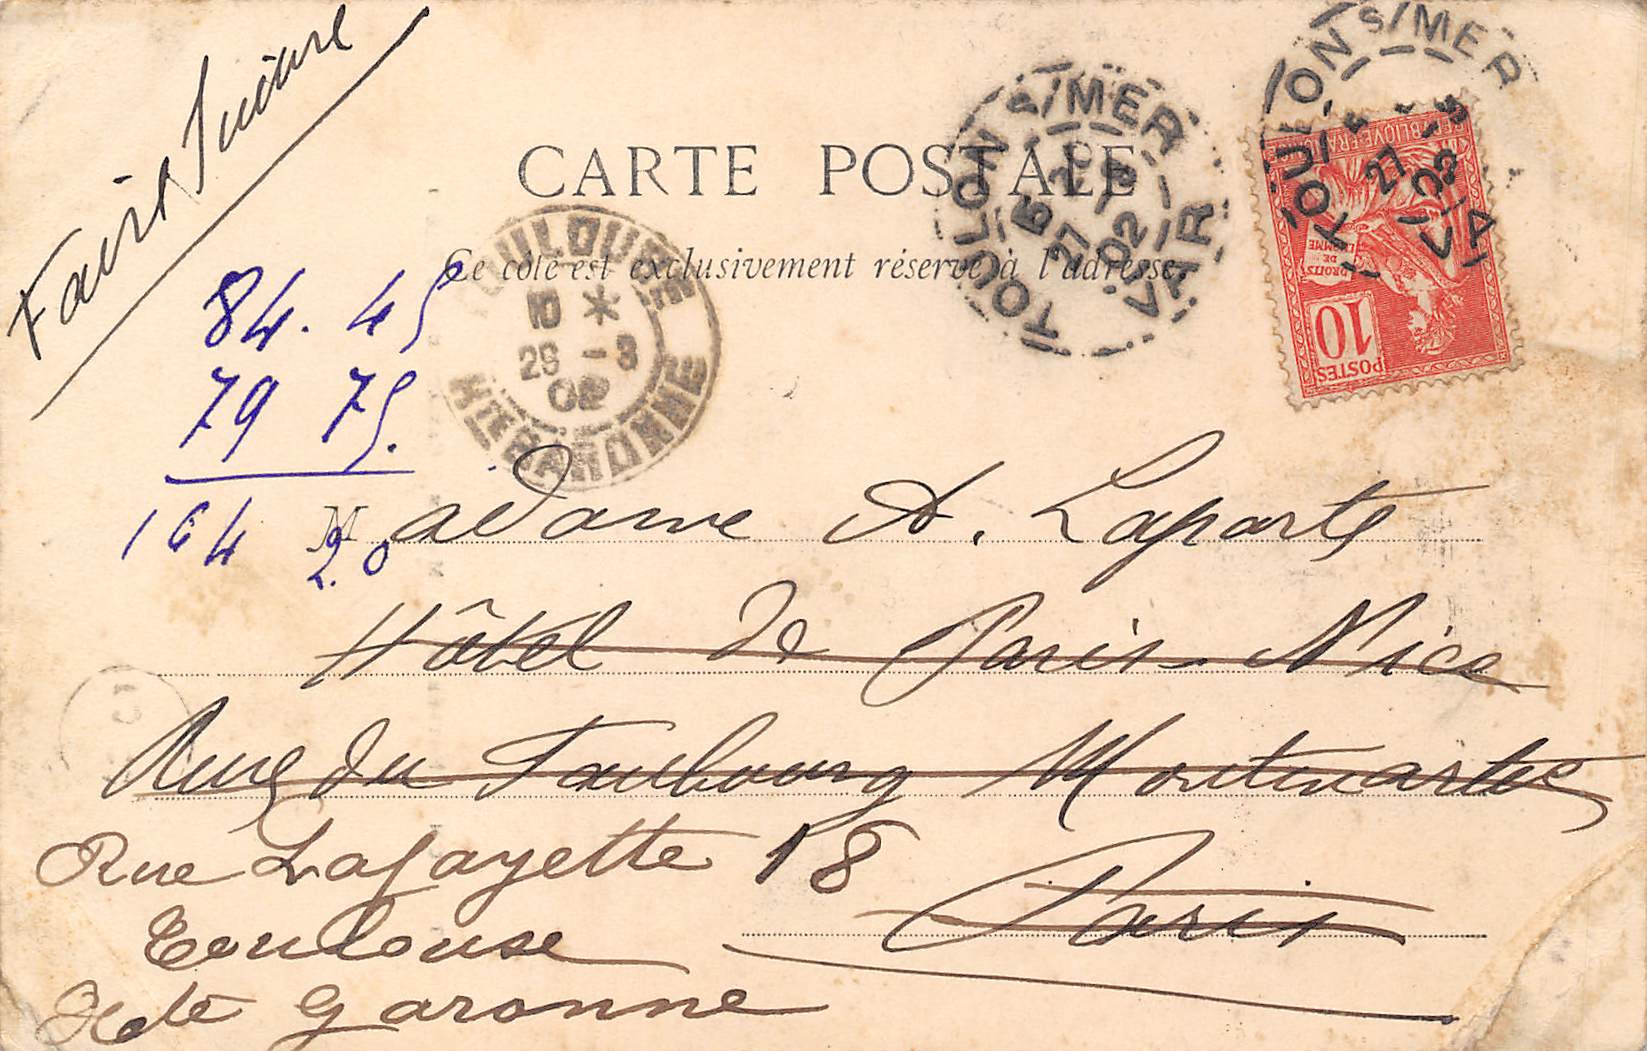 Faire Suivre
CARTE POSTALE
Ce côté est exclusivement réservé à l'adresse.
TOULON S/MER
27
02
VAR
TOULON S/MER
27
02
VA
RÉPUBLIQUE FRANÇAISE
DROITS
DE
L'HOMME
10
POSTES
TOULOUSE
10 *
28 - 3
02
HTE GARONNE
84. 45
79 75.
164 20
Madame A. Laporte
Hôtel de Paris Nice
Rue du Faubourg Montmartre
Rue Lafayette 18
Paris
Toulouse
Hte Garonne